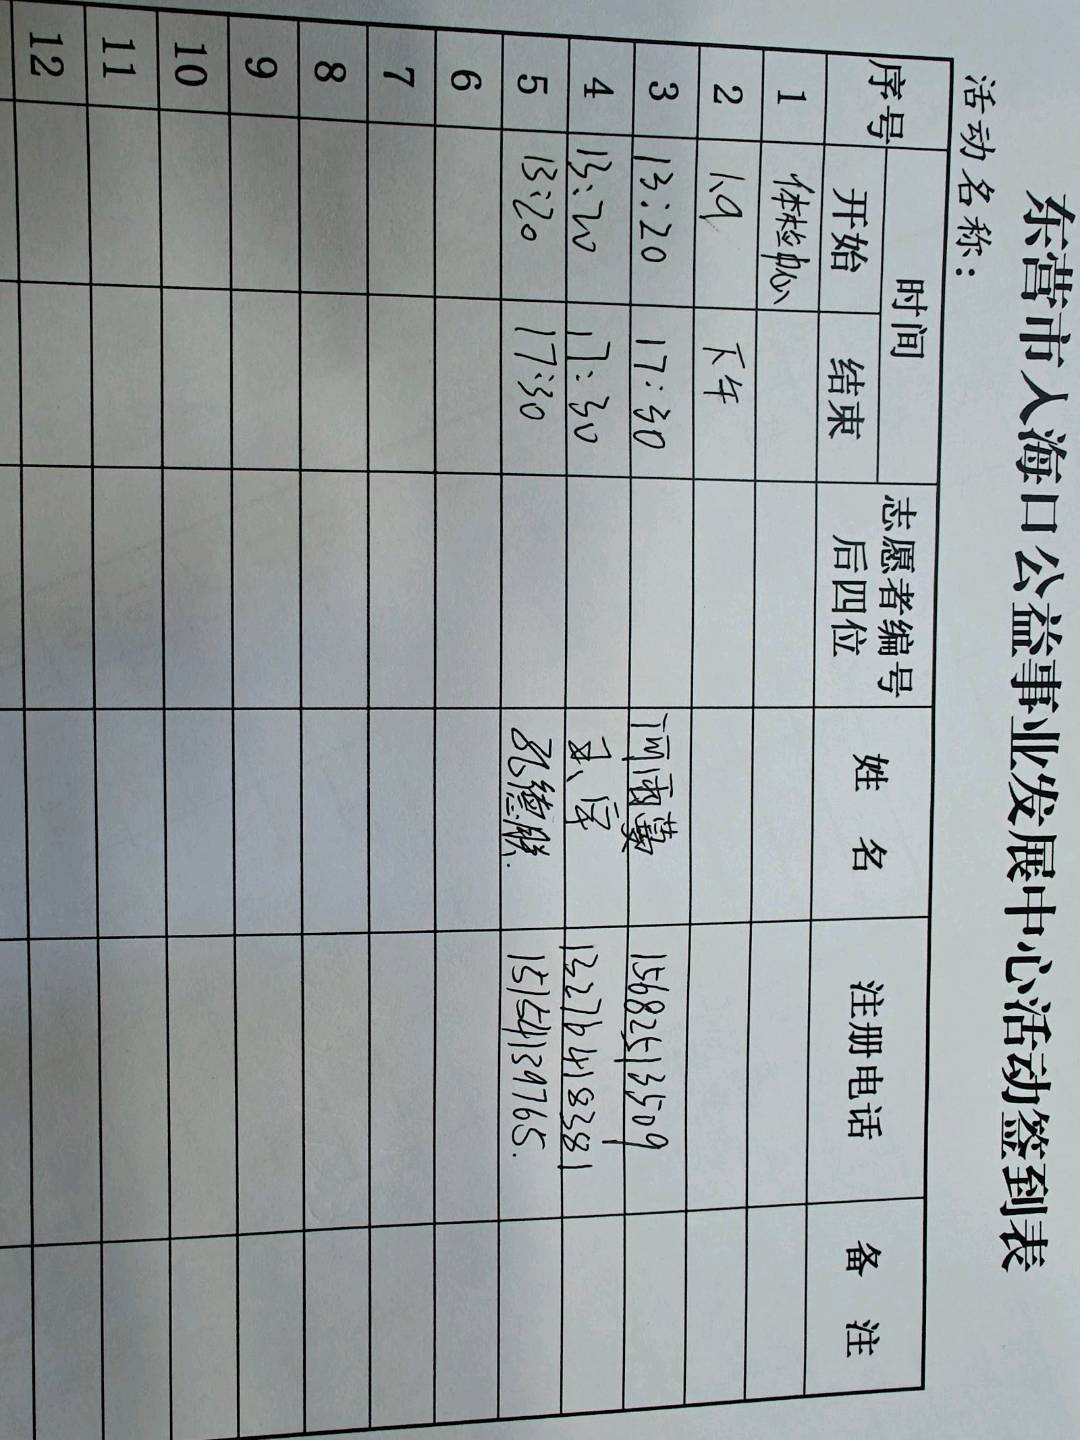 东营市入海口公益事业发展中心活动签到表
活动名称：
序号 时间 志愿者编号后四位 姓 名 注册电话 备 注
开始 结束
1 体检中心
2 1.9 下午
3 13:20 17:30 15682513509
4 13:20 17:30 13276418381
5 13:20 17:30 孔德胜 15154139765
6
7
8
9
10
11
12